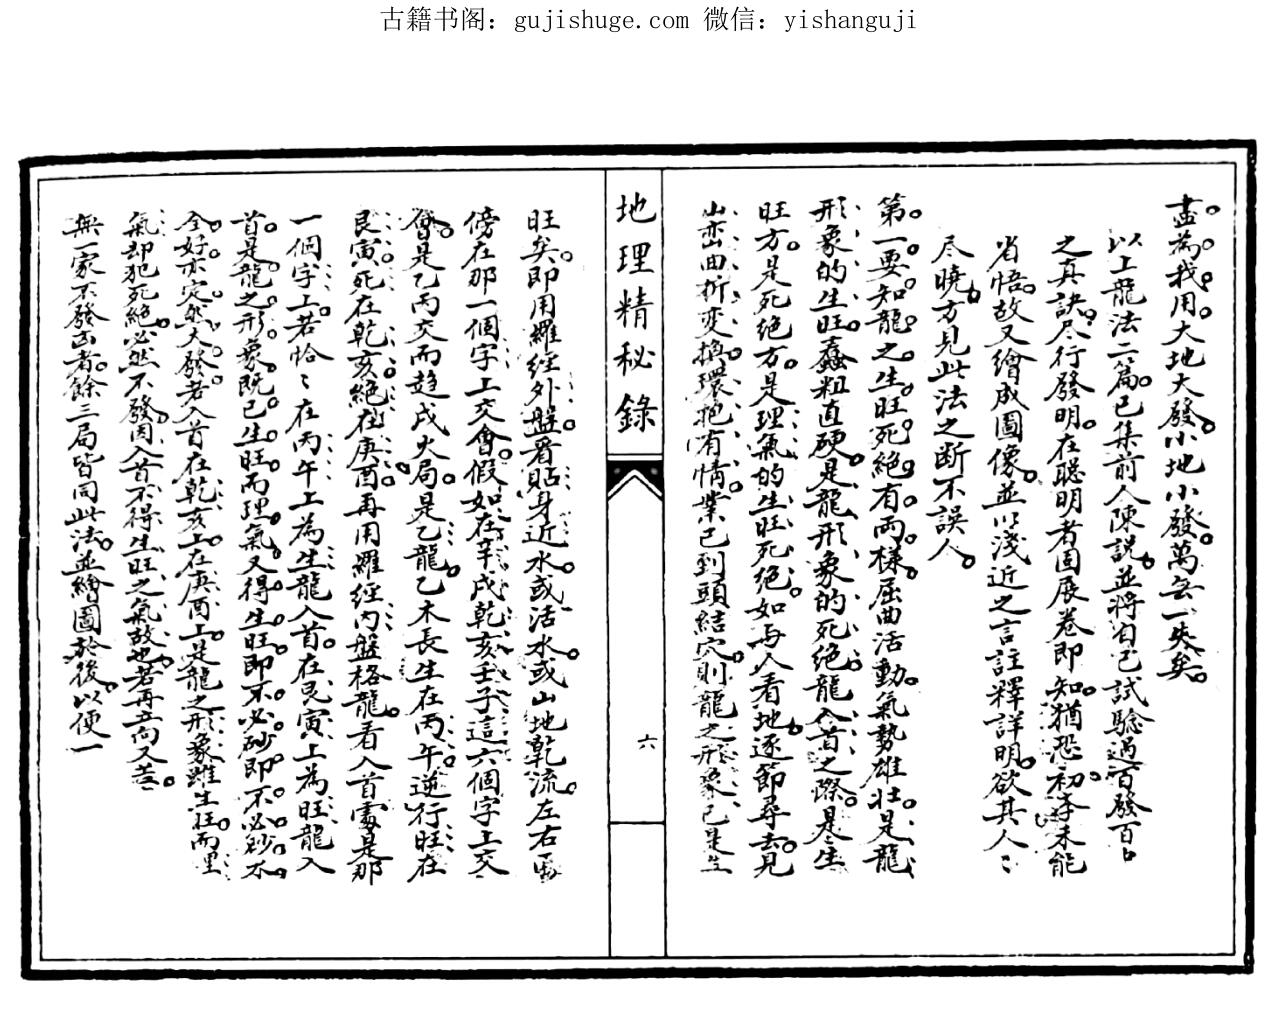 古籍书阁：gujishuge.com 微信：yishanguji
盡為我用大地大發小地小發萬無一失矣
以上龍法二篇已集前人陳說並將自己試驗過百發百
之真訣尽行發明在聰明者固展卷即知猶恐初學未能
省悟故又繪成圖像並以淺近之言註釋詳明欲其人〻
尽曉方見此法之断不誤人
第一要知龍之生旺死絕有兩樣屈曲活動氣勢雄壯是龍
形象的生旺蠢粗直硬是龍形象的死絕龍入首之際是生
旺方是死絕方是理氣的生旺死絕如与人看地逐節尋去見
山峦曲折变換環抱有情業已到頭結穴則龍之形象已是生
地理精秘錄
六
旺矣即用羅經外盤看貼身近水或活水或山地乾流左右両
傍在那一個字上交會假如在辛戌乾亥壬子這六個字上交
會是乙丙交而趋戌火局是乙龍乙木長生在丙午逆行旺在
艮寅死在乾亥絕在庚酉再用羅經內盤格龍看入首處是那
一個字上若恰〻在丙午上為生龍入首在艮寅上為旺龍入
首是龍之形象既已生旺而理氣又得生旺即不必砂即不必砂水
全好亦定然大發若入首在乾亥上在庚酉上是龍之形象雖生旺而里
氣却犯死絕必然不發因入首不得生旺之氣故也若再立向又差
無一家不發凶者餘三局皆同此法並繪圖於後以便一